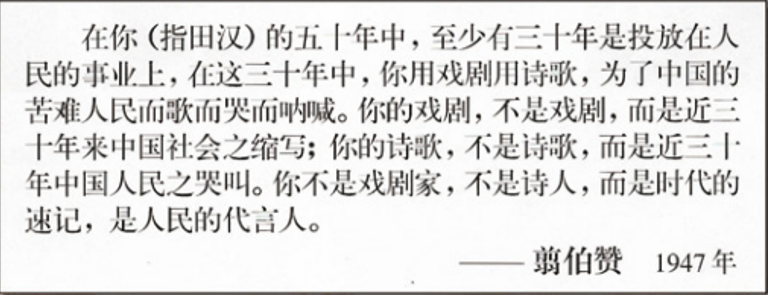 在你（指田汉）的五十年中，至少有三十年是投放在人
民的事业上，在这三十年中，你用戏剧用诗歌，为了中国的
苦难人民而歌而哭而呐喊。你的戏剧，不是戏剧，而是近三
十年来中国社会之缩写；你的诗歌，不是诗歌，而是近三十
年中国人民之哭叫。你不是戏剧家，不是诗人，而是时代的
速记，是人民的代言人。
—— 翦伯赞 1947年